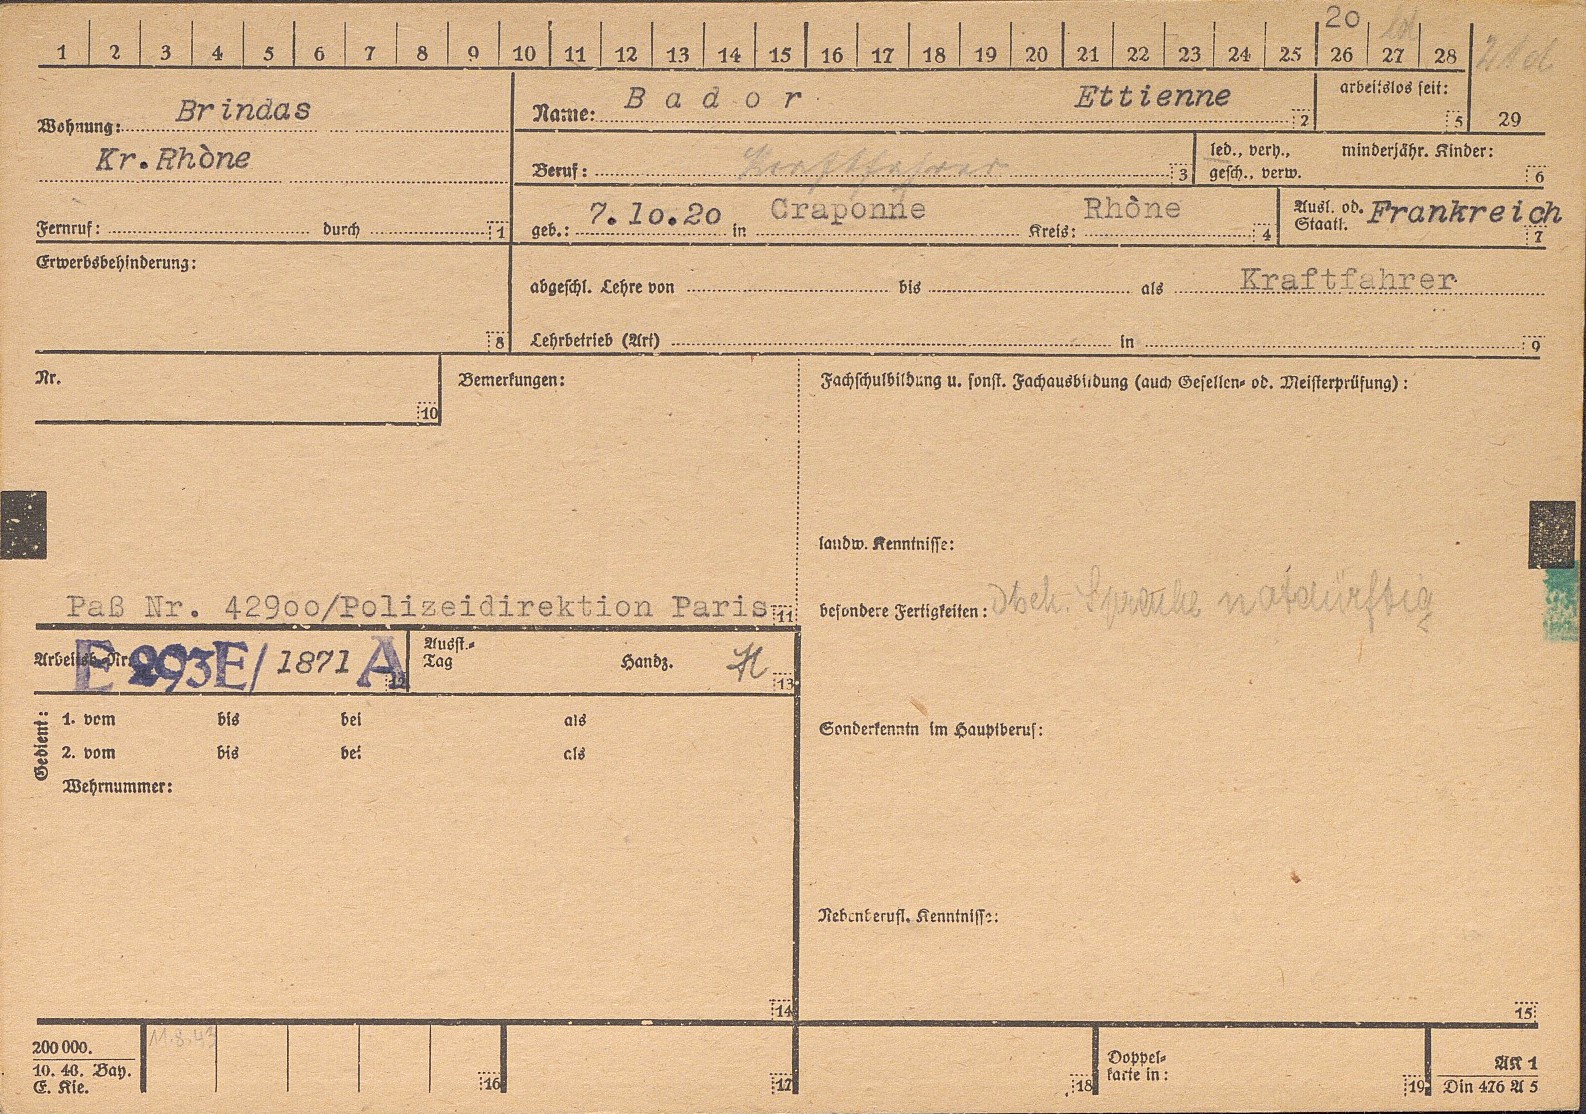 20 ld
1 2 3 4 5 6 7 8 9 10 11 12 13 14 15 16 17 18 19 20 21 22 23 24 25 26 27 28
Wohnung: Brindas
Kr. Rhône
Fernruf: durch 1
Name: Bador Ettienne 2
arbeitslos seit: 5
29
Beruf: Kraftfahrer 3
led., verh., minderjähr. Kinder:
gesch., verw. 6
geb.: 7.10.20 in Craponne Kreis: Rhône 4
Ausl. od. Frankreich
Staatl. 7
Erwerbsbehinderung:
8
abgeschl. Lehre von bis als Kraftfahrer
Lehrbetrieb (Art) in 9
Nr.
10
Bemerkungen:
Paß Nr. 42900/Polizeidirektion Paris 11
Fachschulbildung u. sonst. Fachausbildung (auch Gesellen- od. Meisterprüfung):
landw. Kenntnisse:
besondere Fertigkeiten: dtsch. Sprache notdürftig
Arbeitsb.-Nr. E 293E/ 1871 A 12
Ausst.-
Tag Handz. H 13
Gedient:
1. vom bis bei als
2. vom bis bei als
Wehrnummer:
14
Sonderkenntn im Hauptberuf:
Nebenberufl. Kenntnisse:
15
200 000.
10. 40. Bay.
E. Kie.
11.8.43
16
17
18
Doppel-
karte in:
19
AK 1
Din 476 A 5